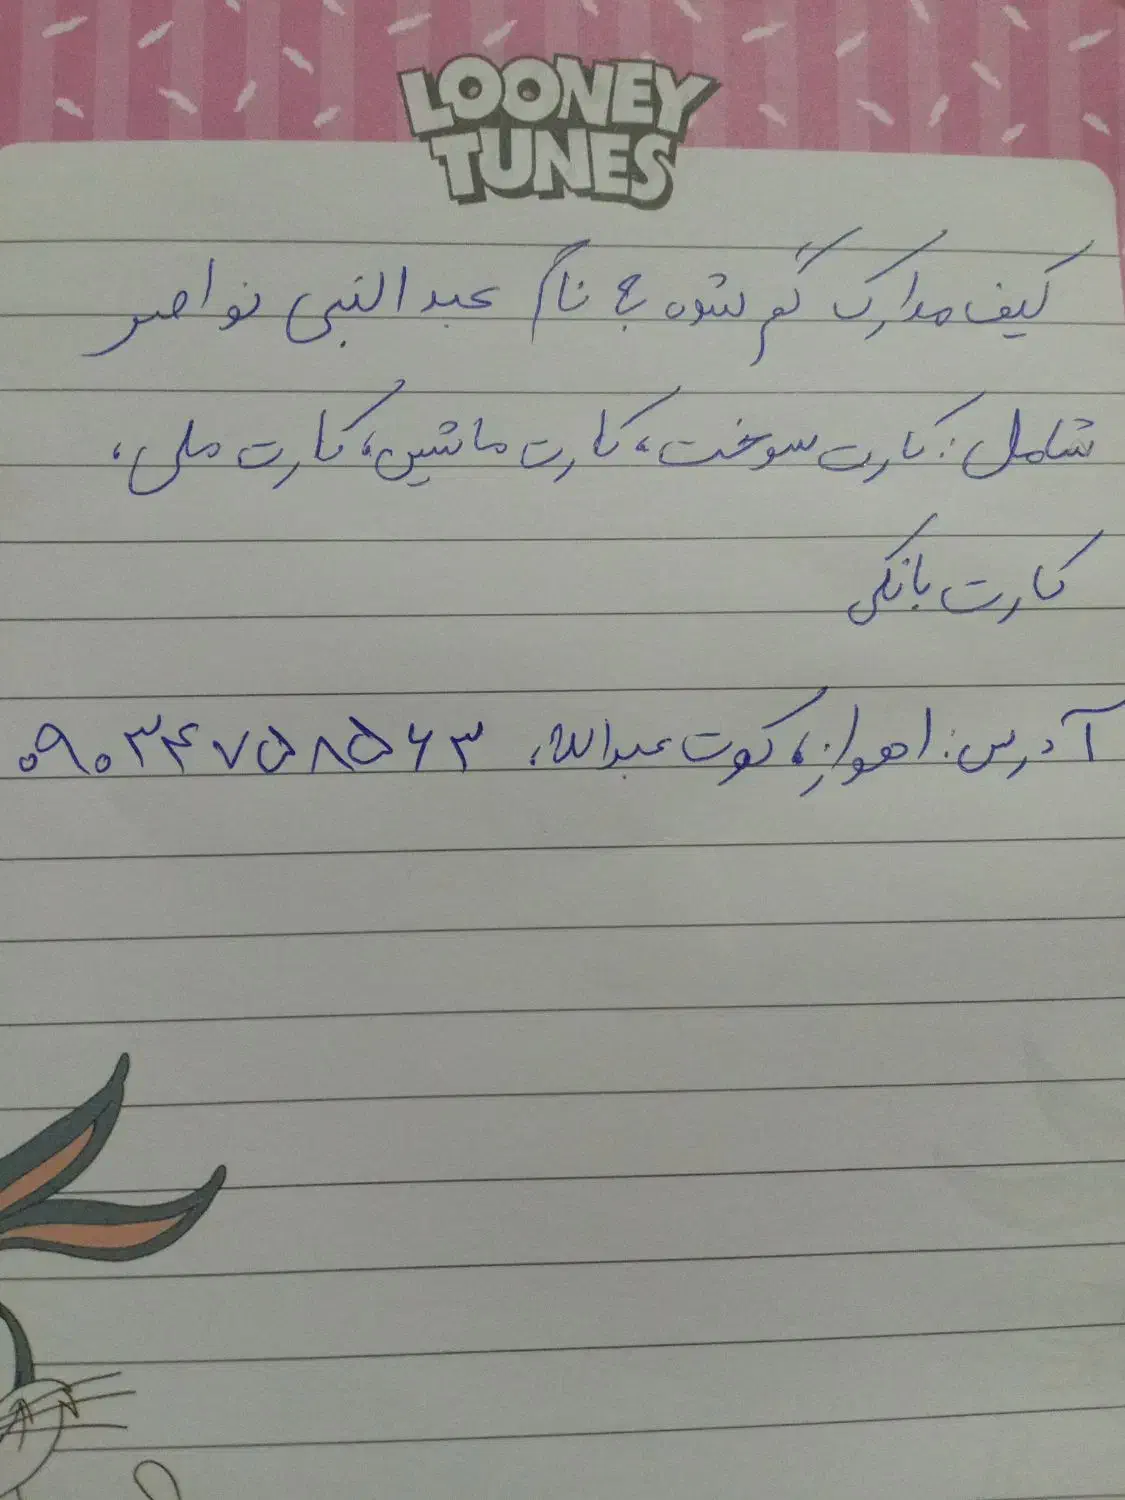 LOONEY
TUNES
کیف مدارک گم شده به نام عبدالنبی نواصر
شامل: کارت سوخت، کارت ماشین، کارت ملی،
کارت بانکی
آدرس: اهواز، کوت عبدالله، ۰۹۰۳۴۷۵۸۵۶۳